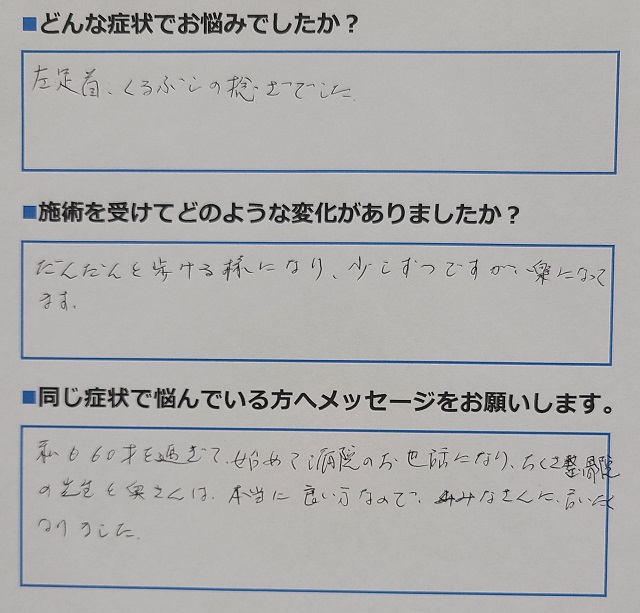 ■どんな症状でお悩みでしたか？
左足首、くるぶしの捻ざでした。
■施術を受けてどのような変化がありましたか？
だんだんと歩ける様になり、少しずつですが、楽になって
ます。
■同じ症状で悩んでいる方へメッセージをお願いします。
私も60才を過ぎて、始めて病院のお世話になり、ちくさ整骨院
の先生と奥さんは、本当に良い方なので、みなさんに、言いたく
なりました。